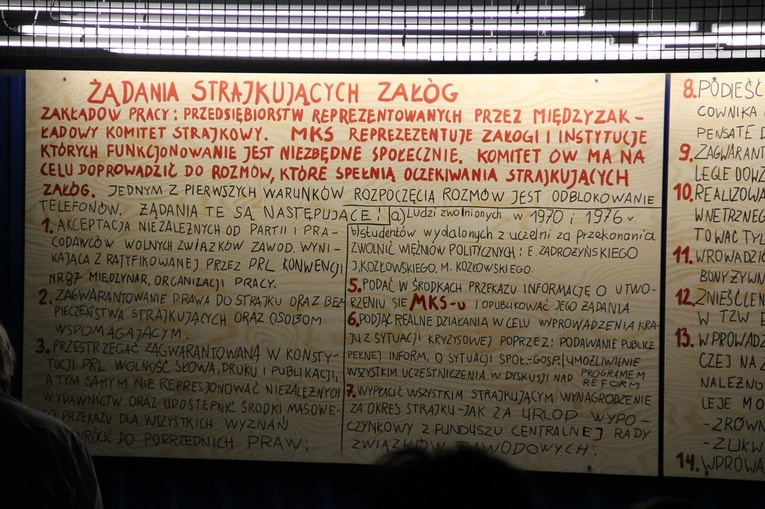 ŻĄDANIA STRAJKUJĄCYCH ZAŁÓG
ZAKŁADÓW PRACY i PRZEDSIĘBIORSTW REPREZENTOWANYCH PRZEZ MIĘDZYZAK-
ŁADOWY KOMITET STRAJKOWY. MKS REPREZENTUJE ZAŁOGI I INSTYTUCJE
KTÓRYCH FUNKCJONOWANIE JEST NIEZBĘDNE SPOŁECZNIE. KOMITET ÓW MA NA
CELU DOPROWADZIĆ DO ROZMÓW, KTÓRE SPEŁNIĄ OCZEKIWANIA STRAJKUJĄCYCH
ZAŁÓG. JEDNYM Z PIERWSZYCH WARUNKÓW ROZPOCZĘCIA ROZMÓW JEST ODBLOKOWANIE
TELEFONÓW. ŻĄDANIA TE SĄ NASTĘPUJĄCE:
1. AKCEPTACJA NIEZALEŻNYCH OD PARTII I PRA-
CODAWCÓW WOLNYCH ZWIĄZKÓW ZAWOD. WYNI-
KAJĄCA Z RATYFIKOWANEJ PRZEZ PRL KONWENCJI
NR 87 MIĘDZYNAR. ORGANIZACJI PRACY.
2. ZAGWARANTOWANIE PRAWA DO STRAJKU ORAZ BEZ-
PIECZEŃSTWA STRAJKUJĄCYCH ORAZ OSOBOM
WSPOMAGAJĄCYM.
3. PRZESTRZEGAĆ ZAGWARANTOWANĄ W KONSTY-
TUCJI PRL WOLNOŚĆ SŁOWA, DRUKU I PUBLIKACJI,
A TYM SAMYM NIE REPRESJONOWAĆ NIEZALEŻNYCH
WYDAWNICTW ORAZ UDOSTĘPNIĆ ŚRODKI MASOWE-
GO PRZEKAZU DLA WSZYSTKICH WYZNAŃ
RÓCIĆ DO POPRZEDNICH PRAW:
a) Ludzi zwolnionych w 1970 i 1976 r.
b) studentów wydalonych z uczelni za przekonania
ZWOLNIĆ WIĘŹNIÓW POLITYCZNYCH: E. ZADROŻYŃSKIEGO
J. KOZŁOWSKIEGO, M. KOZŁOWSKIEGO.
5. PODAĆ W ŚRODKACH PRZEKAZU INFORMACJĘ O UTWO-
RZENIU SIĘ MKS-u I OPUBLIKOWAĆ JEGO ŻĄDANIA
6. PODJĄĆ REALNE DZIAŁANIA W CELU WYPROWADZENIA KRA-
JU Z SYTUACJI KRYZYSOWEJ POPRZEZ: PODAWANIE PUBLICZ
PEŁNEJ INFORM. O SYTUACJI SPOŁ-GOSP. I UMOŻLIWIENIE
WSZYSTKIM UCZESTNICZENIA W DYSKUSJI NAD PROGRAMEM
REFORM
7. WYPŁACIĆ WSZYSTKIM STRAJKUJĄCYM WYNAGRODZENIE
ZA OKRES STRAJKU-JAK ZA URLOP WYPO-
CZYNKOWY Z FUNDUSZU CENTRALNEJ RADY
ZWIĄZKÓW ZAWODOWYCH.
8. PODIEŚĆ
COWNIKA
PENSATE D
9. ZAGWARANT
LEGŁE DOWZ
10. REALIZOWA
WNĘTRZNEG
TOWAĆ TYL
11. WROWADZIĆ
BONY ŻYWN
12. ZNIEŚĆ CEN
W TZW E
13. WPROWADZ
CZEJ NA Z
NALEŻNO
LEJE MO
-ZRÓWN
-ZLIKW
14. WPROWA